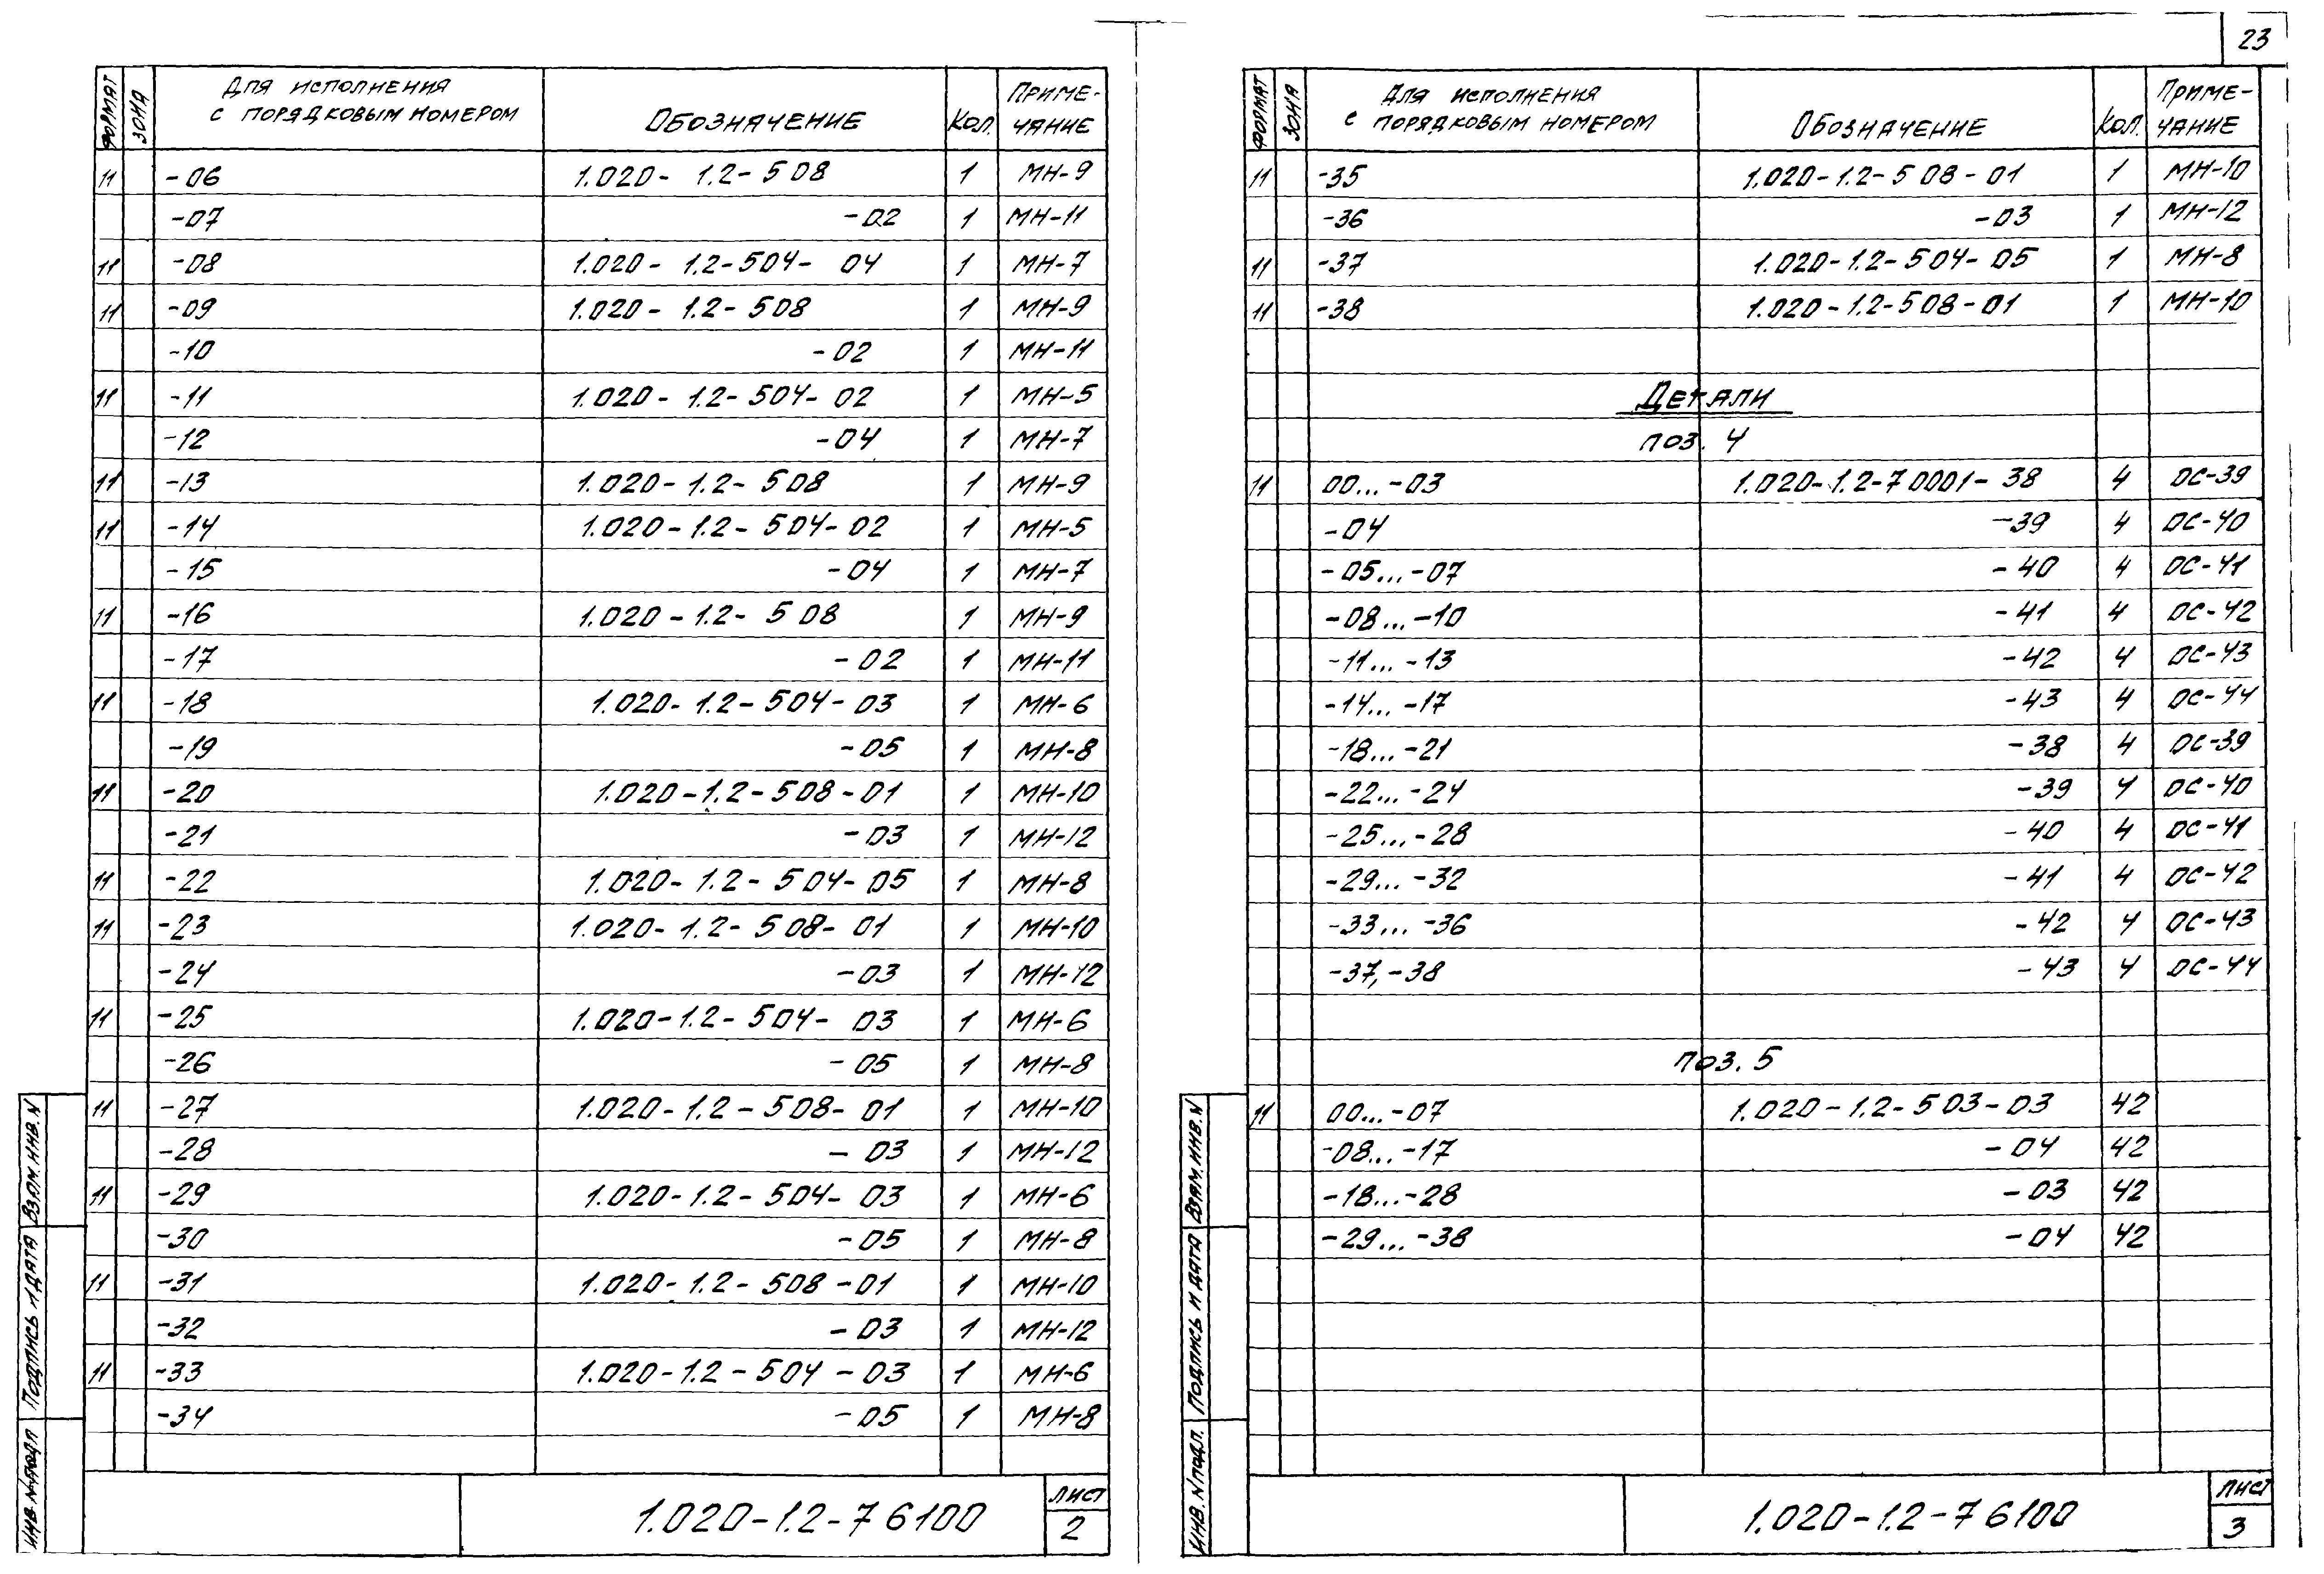 23
ФОРМАТ ЗОНА Для исполнения с порядковым номером Обозначение Кол. Примечание
11 -06 1.020-1.2-508 1 МН-9
-07 -02 1 МН-11
11 -08 1.020-1.2-504-04 1 МН-7
11 -09 1.020-1.2-508 1 МН-9
-10 -02 1 МН-11
11 -11 1.020-1.2-504-02 1 МН-5
-12 -04 1 МН-7
11 -13 1.020-1.2-508 1 МН-9
11 -14 1.020-1.2-504-02 1 МН-5
-15 -04 1 МН-7
11 -16 1.020-1.2-508 1 МН-9
-17 -02 1 МН-11
11 -18 1.020-1.2-504-03 1 МН-6
-19 -05 1 МН-8
11 -20 1.020-1.2-508-01 1 МН-10
-21 -03 1 МН-12
11 -22 1.020-1.2-504-05 1 МН-8
11 -23 1.020-1.2-508-01 1 МН-10
-24 -03 1 МН-12
11 -25 1.020-1.2-504-03 1 МН-6
-26 -05 1 МН-8
11 -27 1.020-1.2-508-01 1 МН-10
-28 -03 1 МН-12
11 -29 1.020-1.2-504-03 1 МН-6
-30 -05 1 МН-8
11 -31 1.020-1.2-508-01 1 МН-10
-32 -03 1 МН-12
11 -33 1.020-1.2-504-03 1 МН-6
-34 -05 1 МН-8
Инв. N подл Подпись и дата Взам. инв. N
1.020-1.2-7 6100
Лист
2
ФОРМАТ ЗОНА Для исполнения с порядковым номером Обозначение Кол. Примечание
11 -35 1.020-1.2-508-01 1 МН-10
-36 -03 1 МН-12
11 -37 1.020-1.2-504-05 1 МН-8
11 -38 1.020-1.2-508-01 1 МН-10
Детали
поз. 4
11 00...-03 1.020-1.2-7 0001-38 4 ОС-39
-04 -39 4 ОС-40
-05...-07 -40 4 ОС-41
-08...-10 -41 4 ОС-42
-11...-13 -42 4 ОС-43
-14...-17 -43 4 ОС-44
-18...-21 -38 4 ОС-39
-22...-24 -39 4 ОС-40
-25...-28 -40 4 ОС-41
-29...-32 -41 4 ОС-42
-33...-36 -42 4 ОС-43
-37,-38 -43 4 ОС-44
поз. 5
11 00...-07 1.020-1.2-503-03 42
-08...-17 -04 42
-18...-28 -03 42
-29...-38 -04 42
Инв. N подл. Подпись и дата Взам. инв. N
1.020-1.2-7 6100
Лист
3